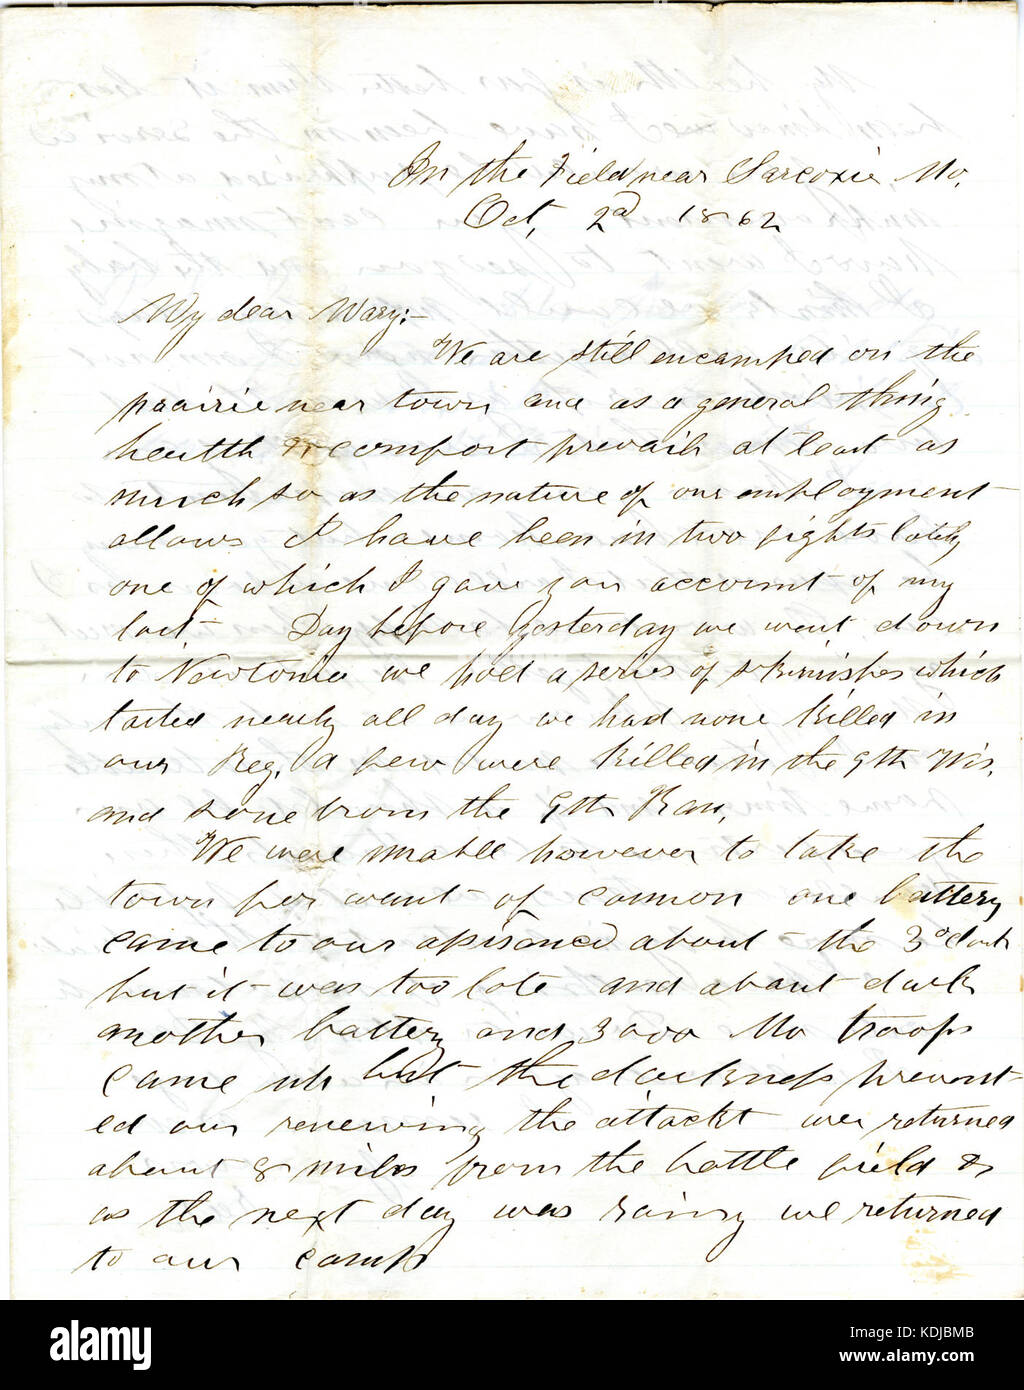 In the Field near Sarcoxie, Mo.
Oct, 2d 1862
My dear Mary:-
We are still encamped on the
prairie near town and as a general thing
health & comfort prevails at least as
much so as the nature of our employment
allows I have been in two fights lately
one of which I gave you account of my
last- Day before yesterday we went down
to Newtonia we had a series of skirmishes which
lasted nearly all day we had none killed in
our Reg. a few were killed in the 9th Wis.
and some from the 9th Kan,
We were unable however to take the
town for want of cannon one battery
came to our about the 3 oclock
but it was too late and about dark
another battery and 3000 Mo troops
came up but the darkness prevent-
ed our renewing the attackt we returned
about 8 miles from the battle field &
as the next day was rainy we returned
to our camp
alamy
Image ID: KDJBMB
www.alamy.com